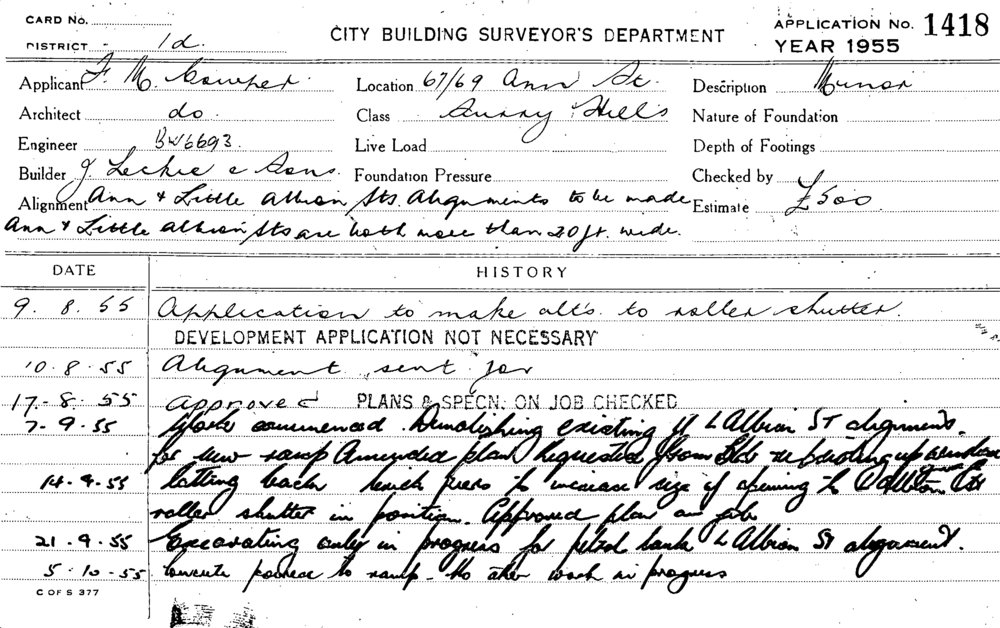 CARD No.
DISTRICT 1d.
CITY BUILDING SURVEYOR'S DEPARTMENT
APPLICATION No. 1418
YEAR 1955
Applicant F. M. Cowper.
Location 67/69 Ann St.
Description Minor
Architect do
Class Surry Hills
Nature of Foundation
Engineer BW6693.
Live Load
Depth of Footings
Builder J Leckie & Sons.
Foundation Pressure
Checked by
Alignment Ann & Little Albion Sts. Alignments to be made
Estimate £500
Ann & Little Albion Sts are both more than 20 ft. wide.
DATE
HISTORY
9. 8. 55 Application to make alt's. to roller shutter.
DEVELOPMENT APPLICATION NOT NECESSARY
10.8.55 Alignment sent for
17-8.55 Approved PLANS & SPECN. ON JOB CHECKED
7-9.55 Work commenced. Demolishing existing L Albion ST alignment.
for new ramp Amended plan Requested from Bldr up window
14.9.55 Cutting back brick piers to increase size of opening to L Albion St
roller shutter in position. Approved plan on job
21.9.55 Excavating only in progress for petrol tank L Albion ST alignment.
5.10.55 Concrete poured to ramp - No other work in progress
C OF S 377